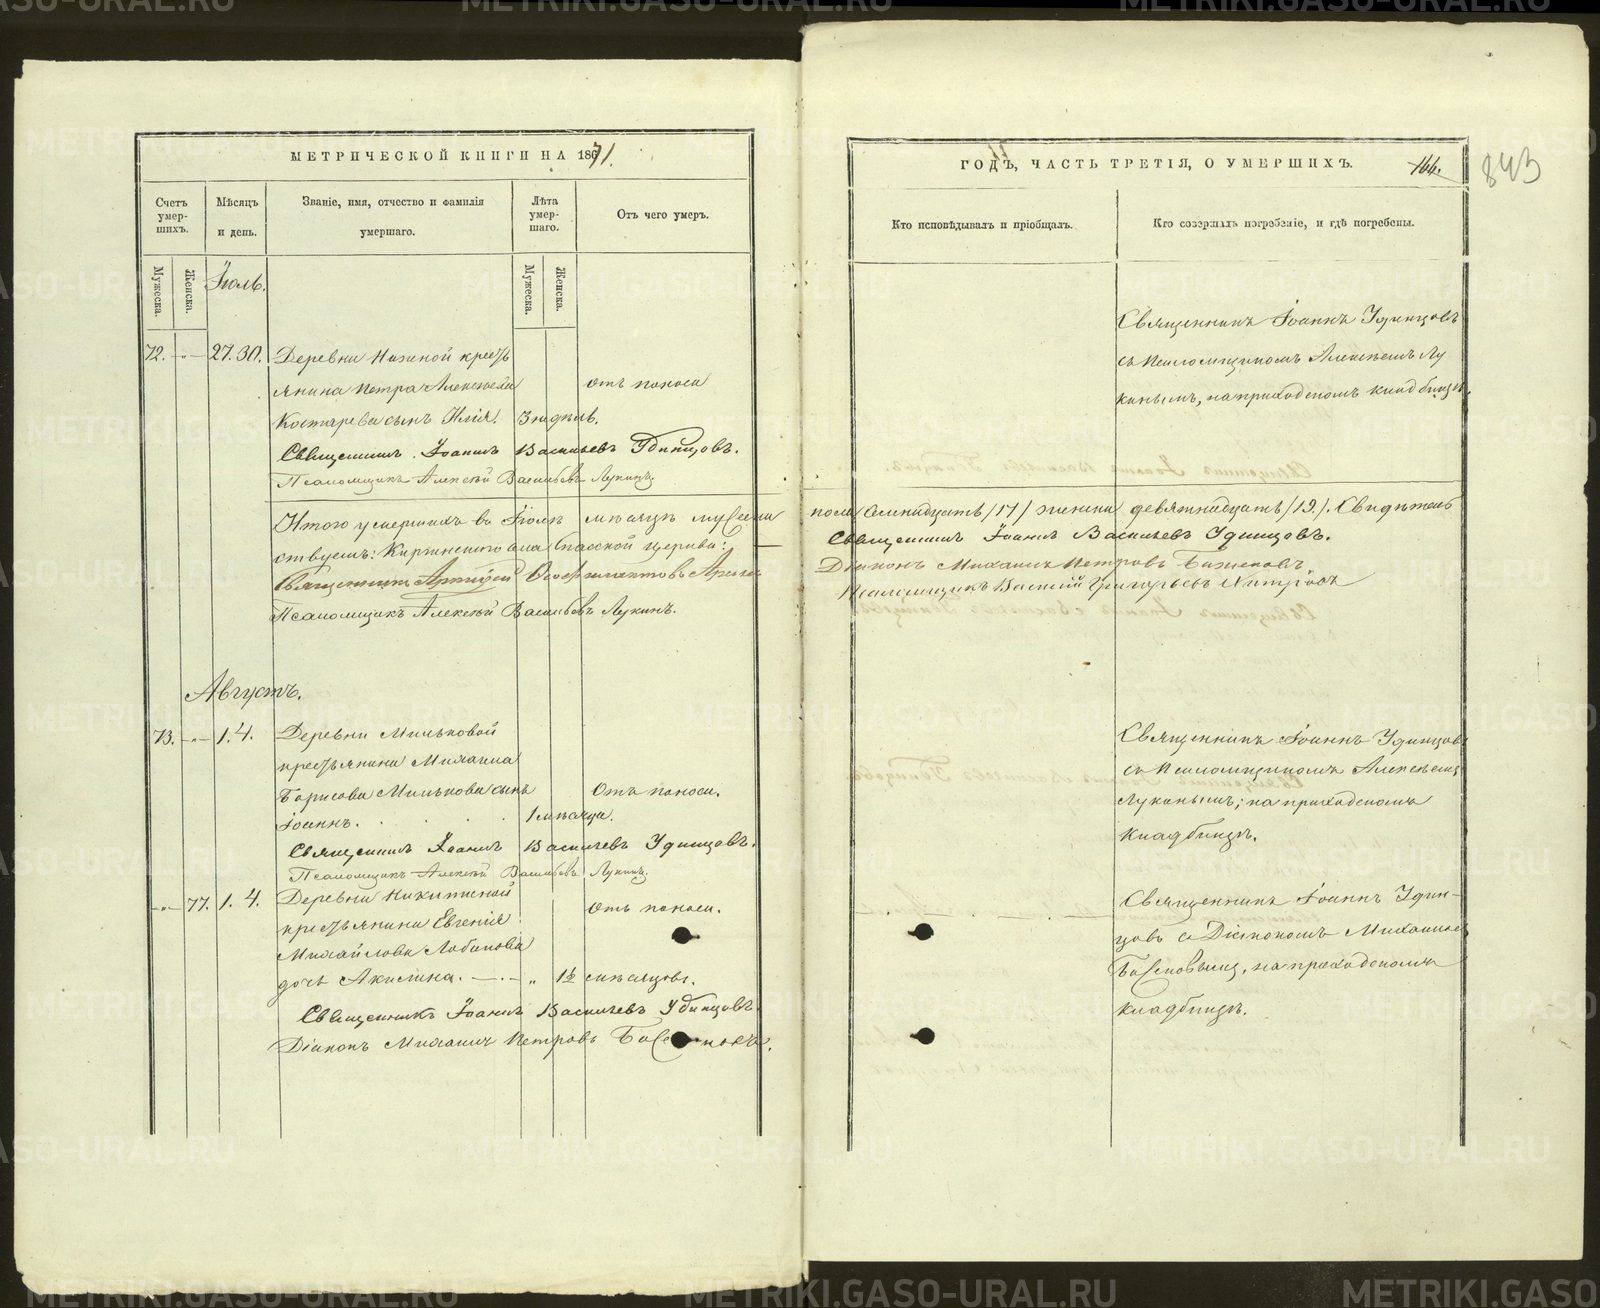 МЕТРИЧЕСКОЙ КНИГИ НА 1871.
Счетъ умер-шихъ.
Мѣсяцъ и день.
Званіе, имя, отчество и фамилія умершаго.
Лѣта умер-шаго.
Отъ чего умеръ.
Мужеска.
Женска.
Мужеска.
Женска.
Іюль.
72. - „ - 27. 30. Деревни Нижной кресть
янина Петра Алексѣева отъ поноса
Костарева сынъ Илія. 3 недѣль.
Священникъ Іоаннъ Васильевъ Удинцовъ.
Псаломщикъ Алексѣй Васильевъ Лукинъ.
Итого умершихъ въ Іюлѣ мѣсяцѣ мужеска
ствуемъ: Киргинскаго села Спасской церкви:
Священникъ
Псаломщикъ Алексѣй Васильевъ Лукинъ.
Августъ.
73. - „ - 1. 4. Деревни Мильковой
крестьянина Михаила
Борисова Милькова сынъ Отъ поноса.
Іоаннъ. 1 мѣсяца.
Священникъ Іоаннъ Васильевъ Удинцовъ.
Псаломщикъ Алексѣй Васильевъ Лукинъ.
- „ - 77. 1. 4. Деревни Никитиной
крестьянина Евгенія Отъ поноса.
Михайлова Лобанова
дочь Акилина. „ 1½ мѣсяцовъ.
Священникъ Іоаннъ Васильевъ Удинцовъ.
Діаконъ Михаилъ Петровъ Баженовъ.
ГОДЪ, ЧАСТЬ ТРЕТІЯ, О УМЕРШИХЪ.
166.
843
Кто исповѣдывалъ и пріобщалъ.
Кто совершалъ погребеніе, и гдѣ погребены.
Священникъ Іоаннъ Удинцовъ
съ Псаломщикомъ Алексѣемъ Лу
кинымъ, на приходскомъ кладбищѣ.
пола семнадцать /17/ женска девятнадцать /19/. Свидѣтель
Священникъ Іоаннъ Васильевъ Удинцовъ.
Діаконъ Михаилъ Петровъ Баженовъ
Псаломщикъ Василій Григорьевъ Хитровъ
Священникъ Іоаннъ Удинцовъ
съ Псаломщикомъ Алексѣемъ
Лукинымъ; на приходскомъ
кладбищѣ.
Священникъ Іоаннъ Удин-
цовъ съ Діакономъ Михаиломъ
Баженовымъ, на приходскомъ
кладбищѣ.
METRIKI.GASO-URAL.RU